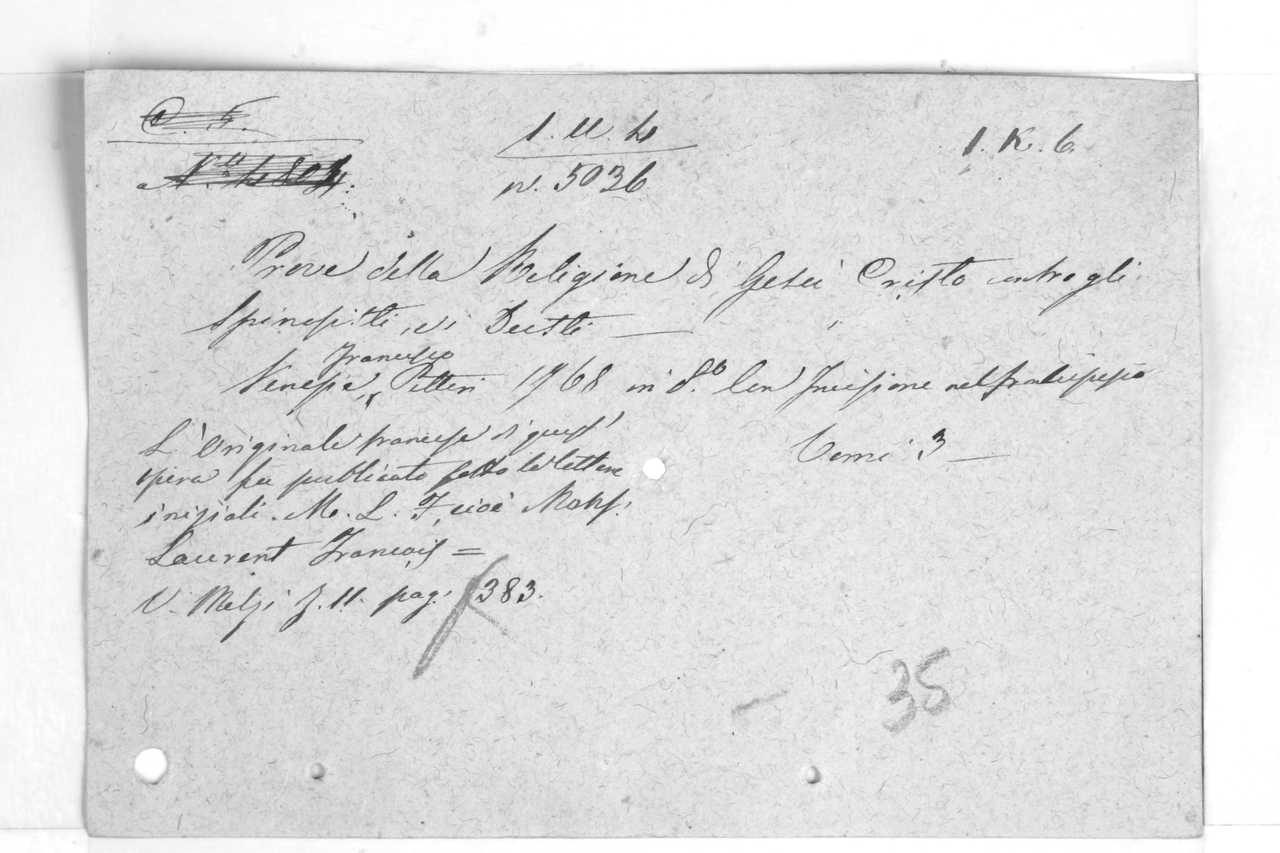 C. F.
N.ro 4804.
1. U. 4
n. 5036
1. K. 6.
Prove della Religione di Gesù Cristo contro gli
Spinosisti, ei Deisti —
Francesco
Venezia, Pitteri 1768 in 8.o Con Incisione nel frontespizio
Tomi 3 —
L'Originale francese di quest'
opera fu publicato sotto le lettere
iniziali. M. L. F, cioè Mons.
Laurent François =
V. Melzi T. II. pag. 383.
35